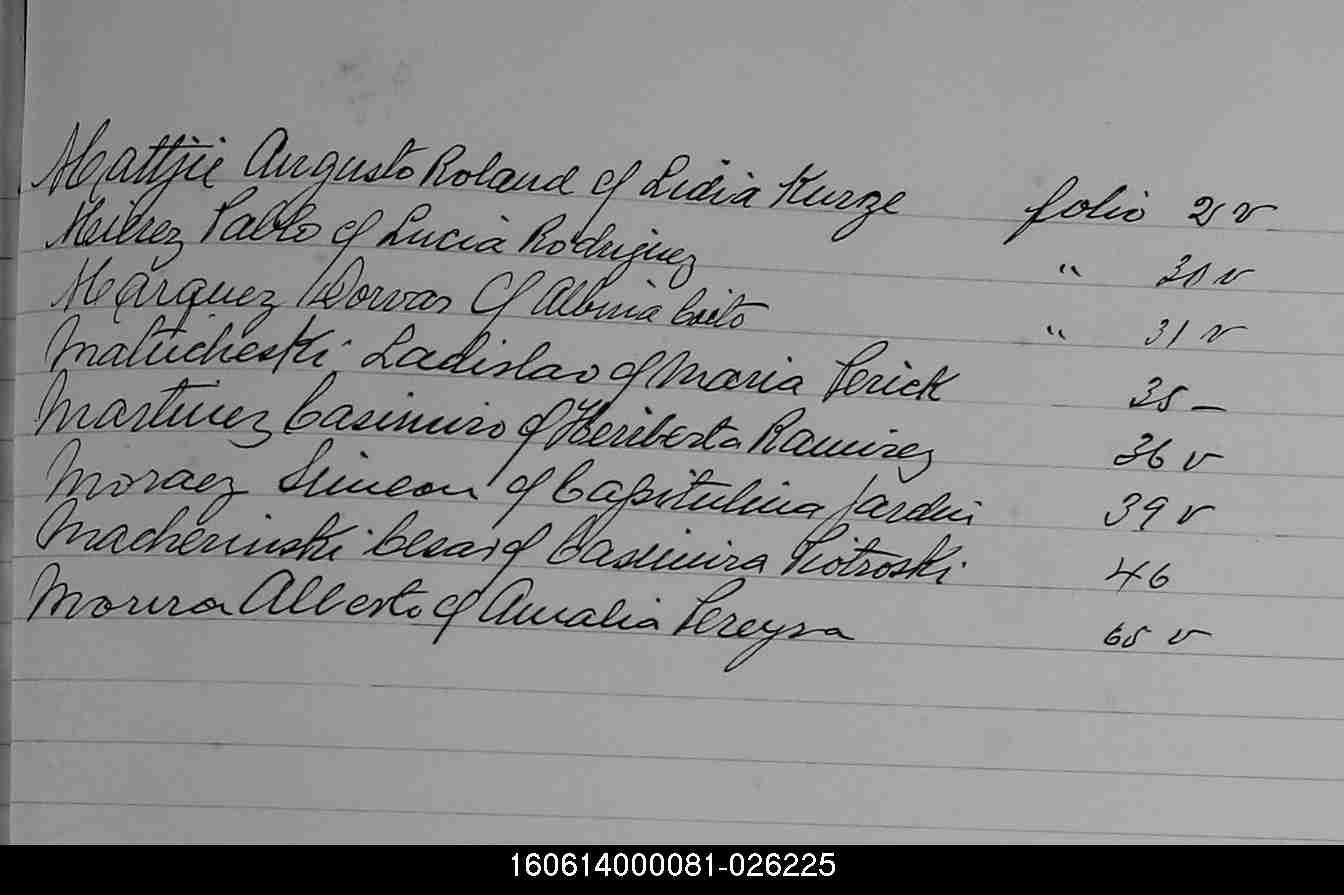 Mattjie Augusto Roland cf Lidia Kurze folio 25 v
Meilrez Pablo cf Lucia Rodriguez " 30 v
Márquez Dorval cf Albina Brito " 31 v
Matucheski Ladislao cf Maria Perick 35 –
Martinez Casimiro cf Heriberta Ramirez 36 v
Moraez Simeon cf Capitulina Jardin 39 v
Macherinski Cesar cf Casimira Piotroski 46
Alberto cf Amalia Pereyra 65 v
160614000081-026225